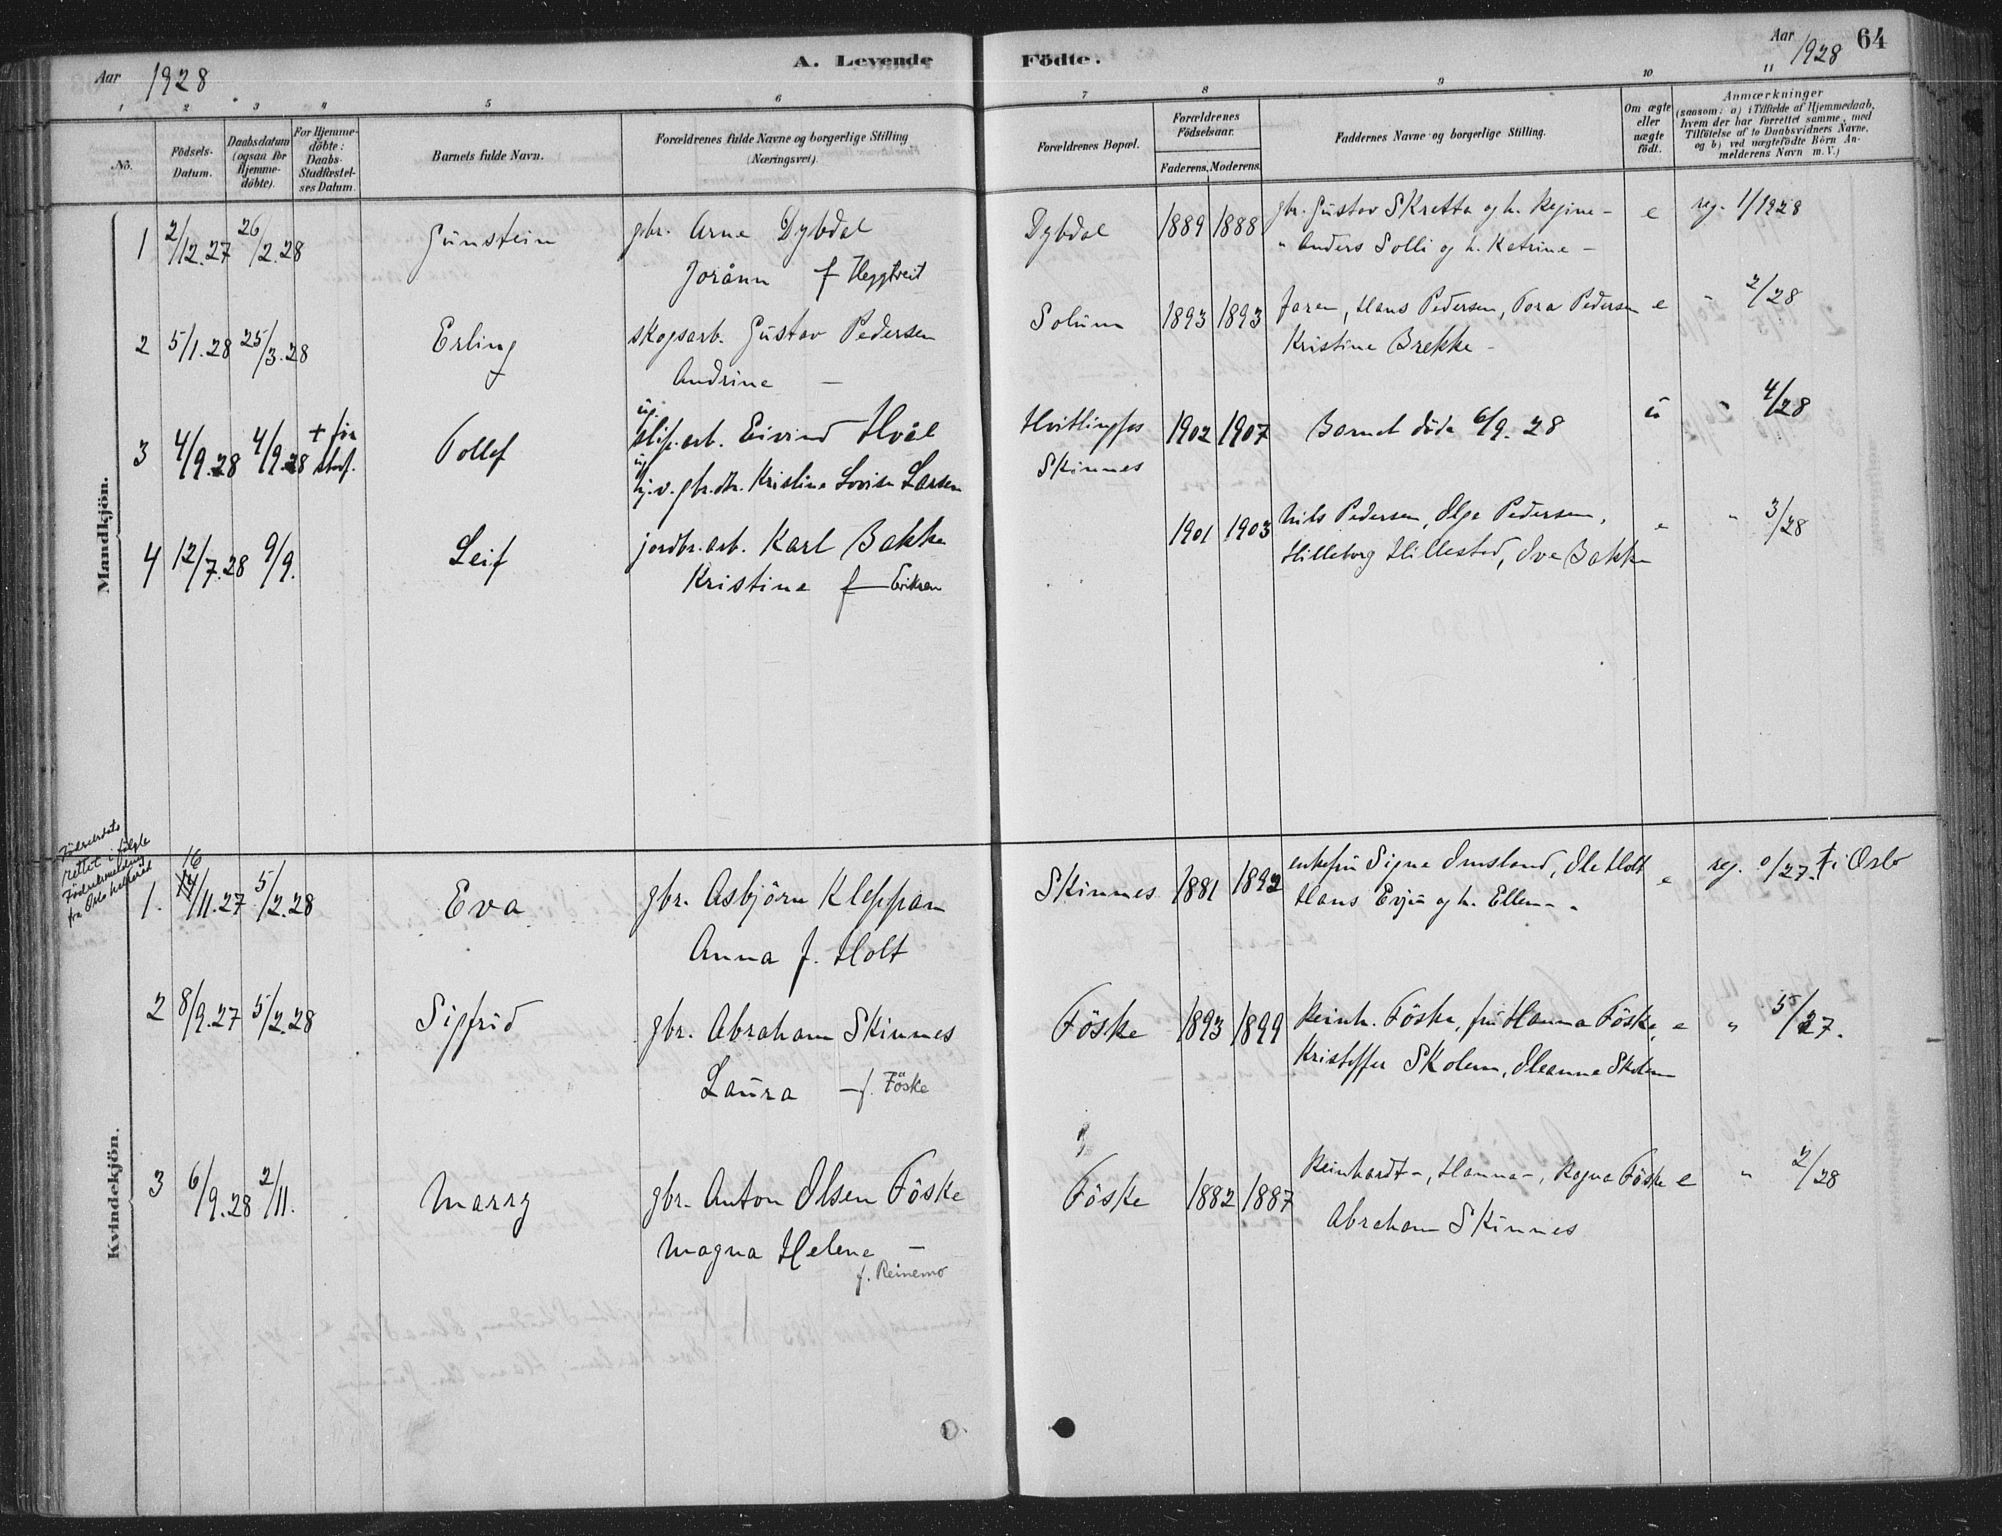 Aar 1928
A. Levende Födte.
Aar 1928 64
1 2 3 4 5 6 7 8 9 10 11
Nô.
Födsels-Datum.
Daabsdatum (ogsaa for Hjemme-döbte).
For Hjemme-döbte: Daabs-Stadfæstel-ses Datum.
Barnets fulde Navn.
Forældrenes fulde Navne og borgerlige Stilling (Næringsvei).
Forældrenes Bopæl.
Forældrenes Födselsaar.
Faderens. Moderens.
Faddernes Navne og borgerlige Stilling.
Om ægte eller uægte födt.
Anmærkninger
(saasom: a) i Tilfælde af Hjemmedaab,
hvem der har forrettet samme, med
Tilföielse af to Daabsvidners Navne,
og b) ved uægtefödte Börn An-
melderens Navn m. V.)
Mandkjön.
1 2/12.27 26/2.28 Gunstein gbr. Arne Dybdal Dybdal 1889 1888 gbr. Gustav Skretta og h. Regine - e reg. 1/1928
Joränn f Heggtveit " Anders Solli og h. Katrine -
2 5/1.28 25/3.28 Erling skogsarb. Gustav Pedersen Solum 1893 1893 faren, Hans Pedersen, Tora Pedersen e " 2/28
Andrine - Kristine Brekke -
3 4/9.28 4/9.28 + för stadf. Tollef ug. slip.arb. Eivind Hvål Hvittingfos 1902 1907 Barnet döde 6/9.28 u " 4/28
ug. hj.v. gbr.dtr. Kristine Lovise Larsen Skinnes
4 12/7.28 9/9. Leif jordbr.arb. Karl Bakke 1901 1903 Nils Pedersen, Olga Pedersen, e " 3/28
Kristine f Eriksen Hilleborg Hillestad, Ove Bakke
Födselsdato
rettet i fölge
Födselsmelding
fra Oslo helseråd
Kvindekjön.
1. 16 14/11.27 5/2.28 Eva gbr. Asbjörn Kleppan Skinnes 1881 1892 enkefru Signe Omsland, Ole Holt e reg. 0/27. f i Oslo
Anna f. Holt Hans Evju og h. Ellen -
2 8/9.27 5/2.28 Sigfrid gbr. Abraham Skinnes Föske 1893 1899 Reinh. Föske, fru Hanna Föske, e " 5/27.
Laura - f. Föske Kristoffer Skolem, Oleanne Skolem
3 6/9.28 2/11. Marry gbr. Anton Olsen Föske Föske 1882 1887 Reinhardt -, Hanna -, Ragna Föske e " 2/28
Magna Helene - f. Reinemo Abraham Skinnes